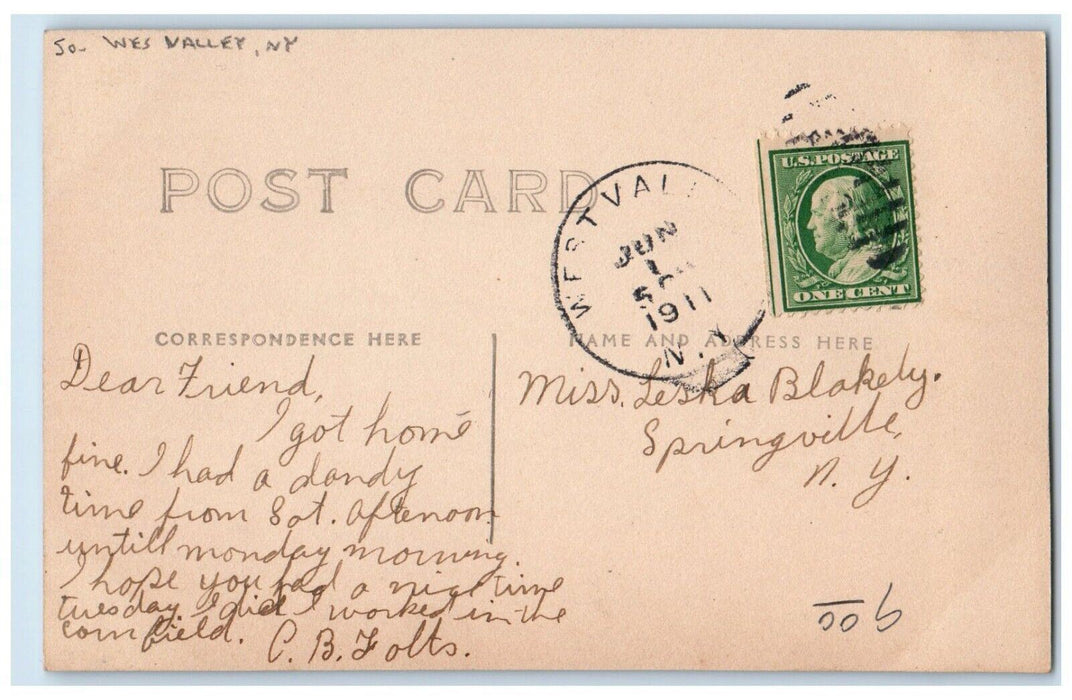 So- WES VALLEY, NY
POST CARD
WESTVAL
JUN
1
1911
N.Y
U.S. POSTAGE
ONE CENT
CORRESPONDENCE HERE
NAME AND ADDRESS HERE
Dear Friend,
I got home
fine. I had a dandy
time from Sat. Afternoon
untill monday morning.
I hope you had a nice time
tuesday I did I worked in the
corn field.
C. B. Folts.
Miss. Leska Blakely.
Springville,
N. Y.